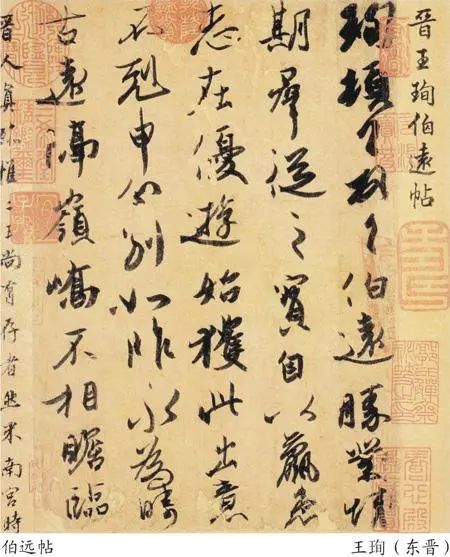 晉王珣伯遠帖
珣頓首頓首伯遠勝業情
期羣從之寶自以羸患
志在優遊始獲此出意
不剋申分別如昨永為疇
古遠隔嶺嶠不相瞻臨
晉人真跡惟二王尚有存者然米南宮時
伯远帖 王珣（东晋）